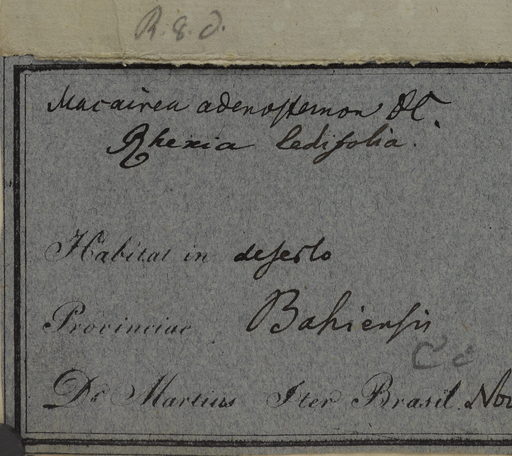 R. 8. d.
Macairea adenostemon DC.
Rhexia ledifolia.
Habitat in deserto
Provinciae Bahiensis
C c
Dr. Martius Iter Brasil. Nov